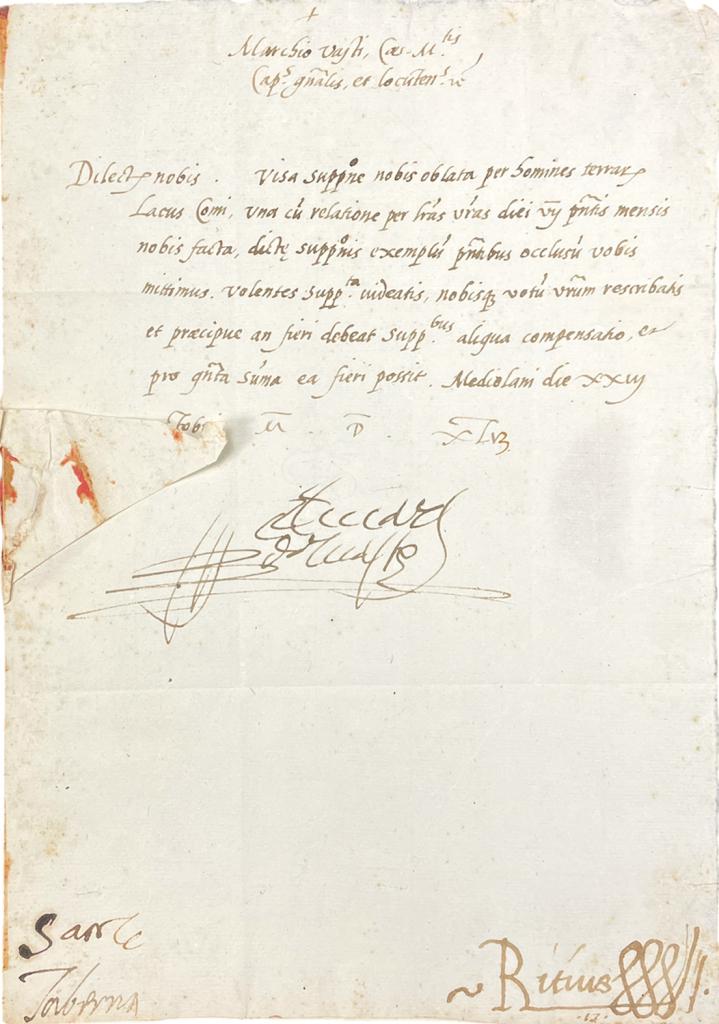 +
Marchio Vasti, Caes. M.tis
Cap.s gn̄alis, et locuten.s rc̄
Dilect nobis. Visa suppne nobis oblata per homines terrar
Lacus Comi, una cū relatione per lr̄as vr̄as diei vij pn̄tis mensis
nobis facta, dictę suppnis exemplū pn̄tibus occlusū vobis
mittimus. volentes supp.ta videatis, nobisq votū vr̄um rescribatis
et præcipue an fieri debeat supp.bus aliqua compensatio, et
pro qn̄ta sūma ea fieri possit. Mediolani die xxiij
M D XLV
Ritius
Taberna